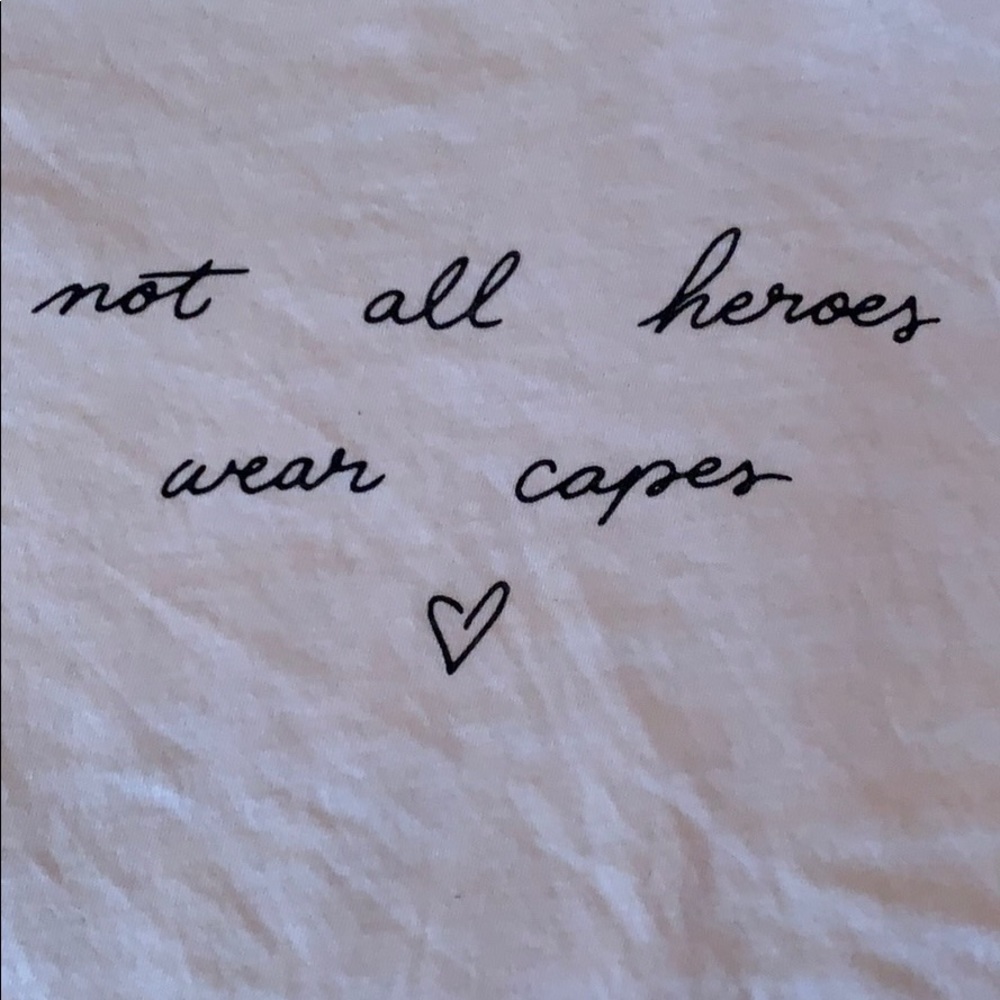 not all heroes
wear capes
♡